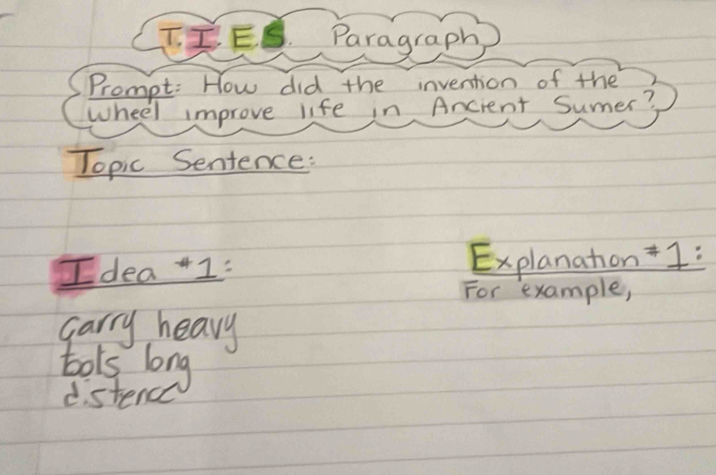 T.I.E.S. Paragraph
Prompt: How did the invention of the
wheel improve life in Ancient Sumer?
Topic Sentence:
Idea #1:
Explanation #1:
For example,
carry heavy
tools long
distence